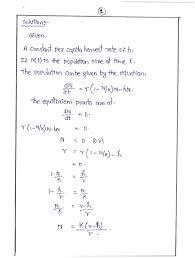 1
Solution:-
Given.
A constant per capita harvest rate of h.
If N(t) is the population size at time t.
The population can be given by the equation.
dN/dt = r(1-N/K)N-hN.
The equilibrium points are at
dN/dt = 0.
r(1-N/K)N-hN = 0.
N = 0 (or)
r = r(1-N/K)-h
1-N/K = h/r
1-h/r = N/K
N/K = (r-h)/r
N = K(r-h)/r.